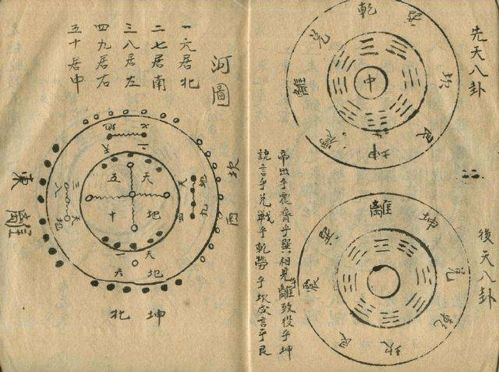 先天八卦
乾
兌
離
震
坤
艮
坎
中
後天八卦
離
坤
兌
乾
坎
艮
帝出乎震齊乎巽相見離致役乎坤
說言乎兌戰乎乾勞乎坎成言乎艮
河圖
一六居北
二七居南
三八居左
四九居右
五十居中
天五
地十
坎
西
東
離
坤
北